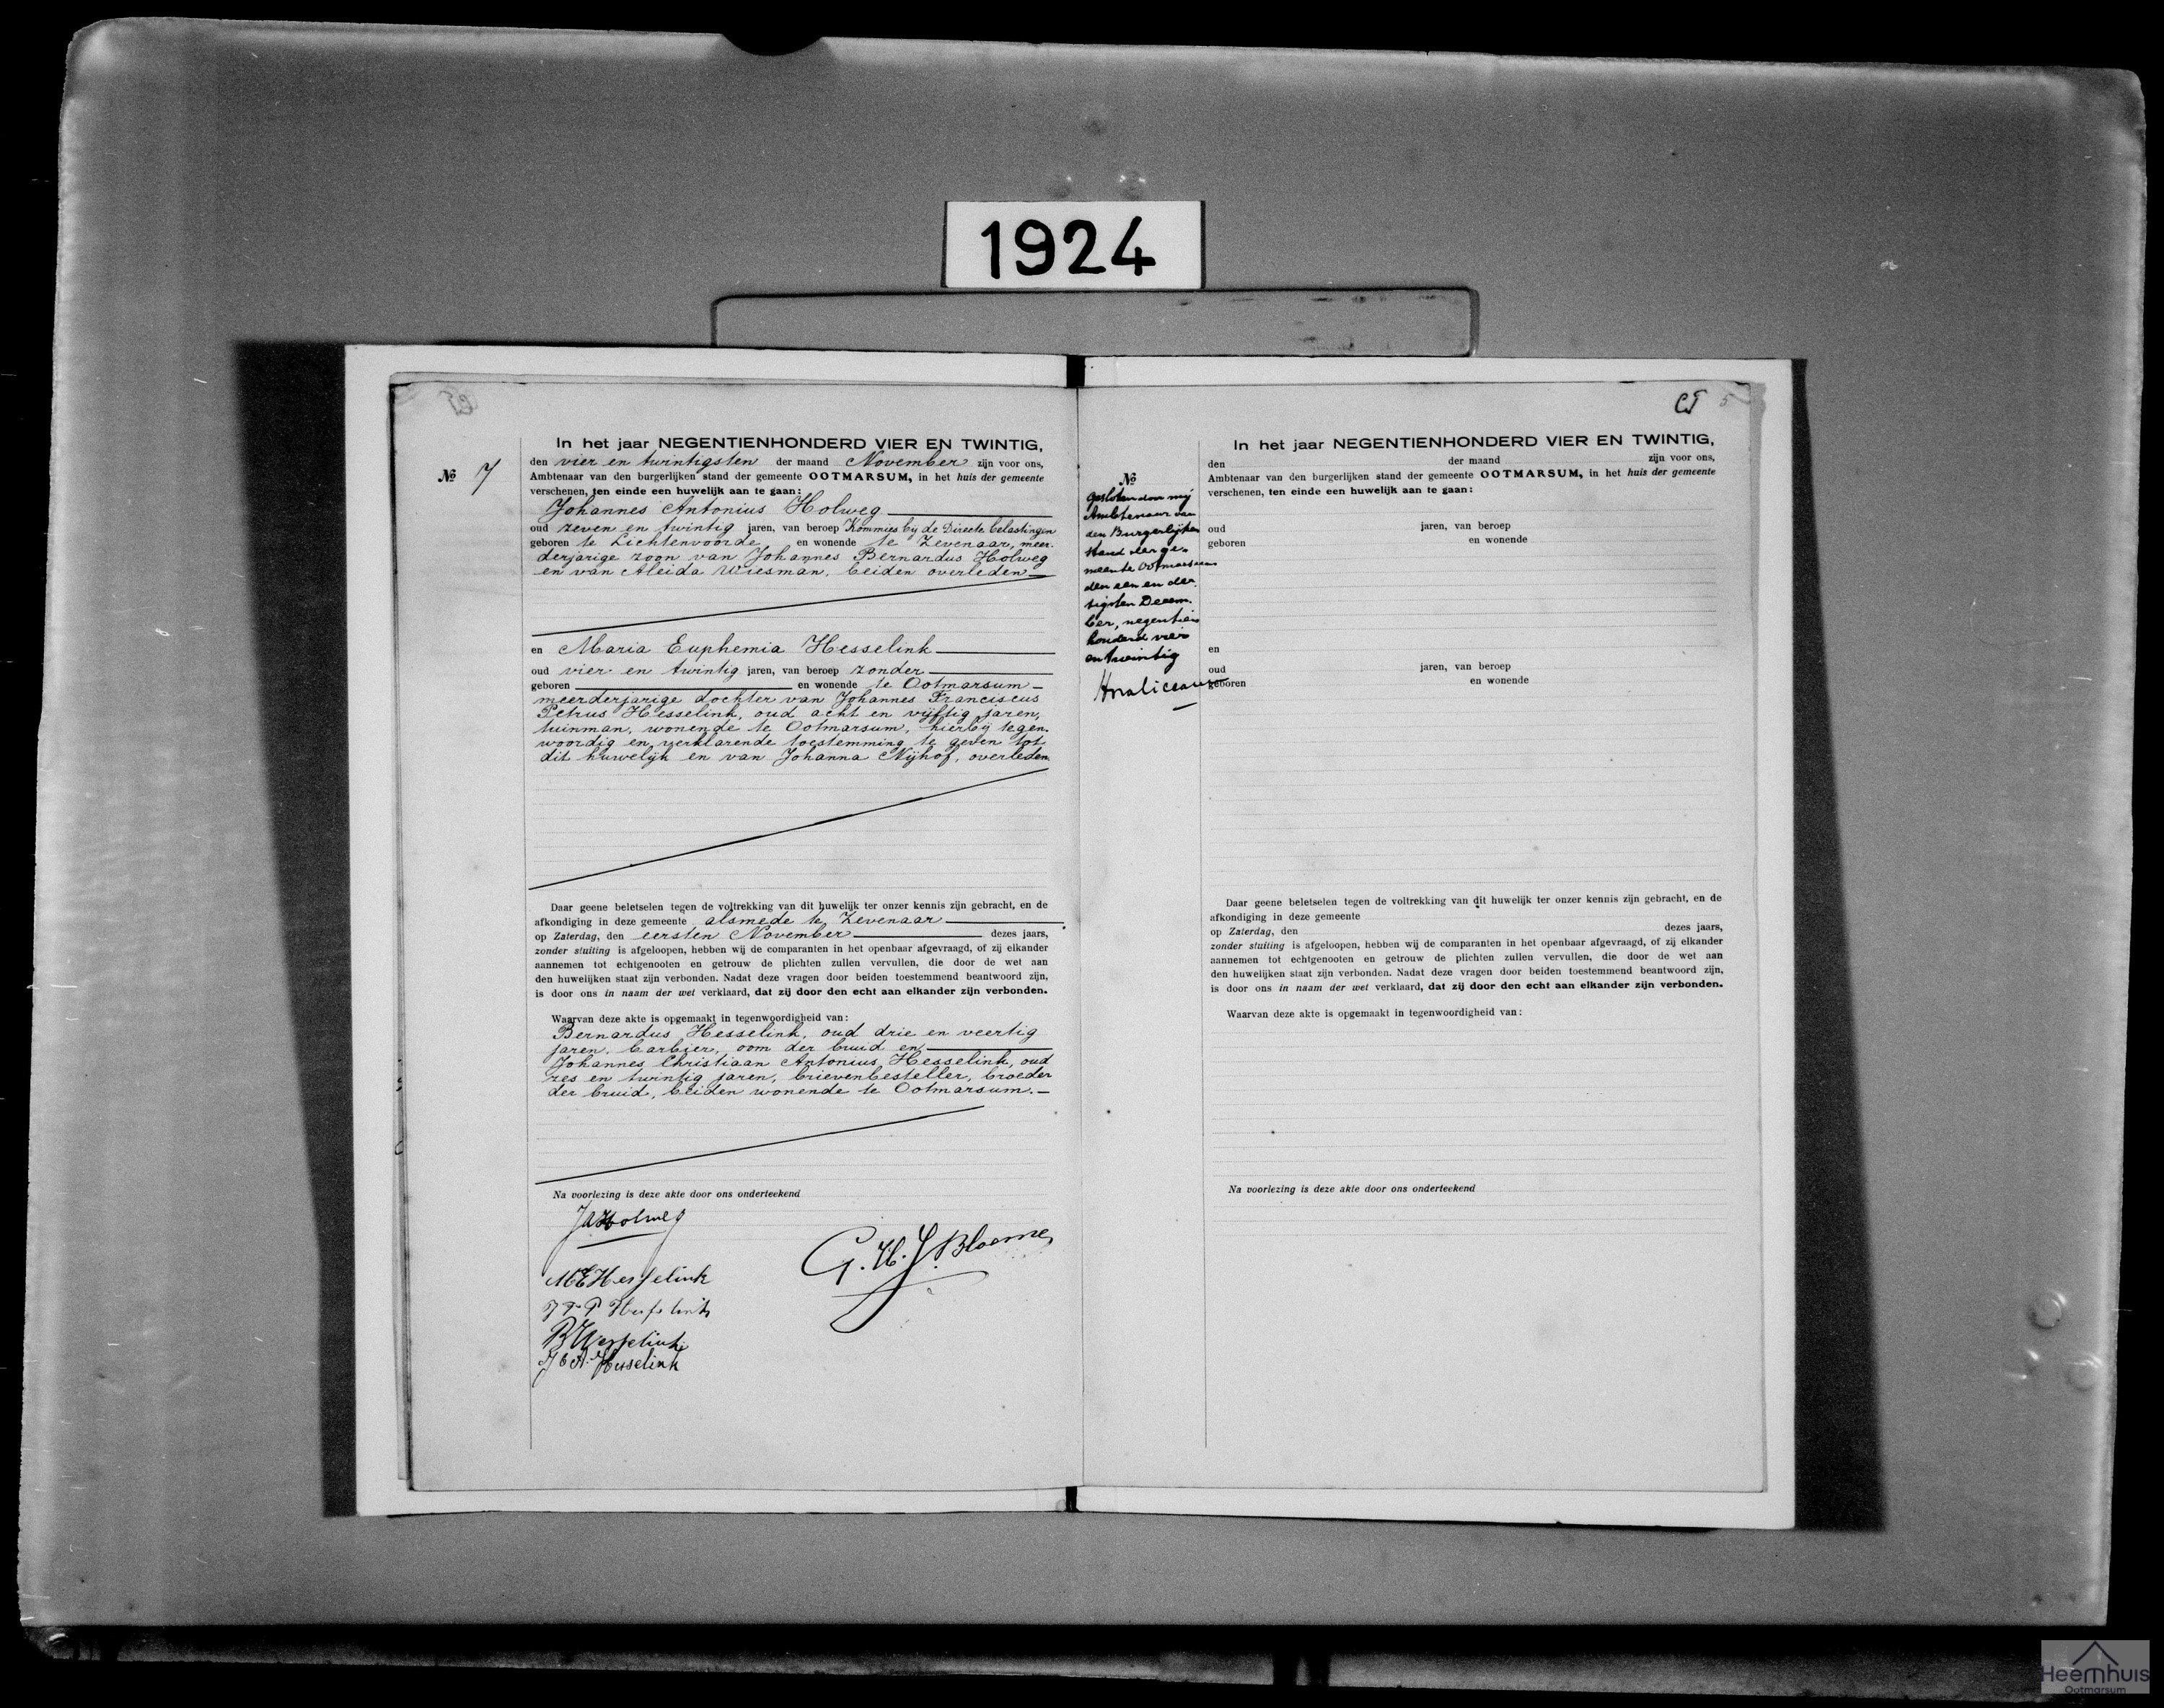 1924
In het jaar NEGENTIENHONDERD VIER EN TWINTIG,
den vier en twintigsten der maand November zijn voor ons,
№ 7
Ambtenaar van den burgerlijken stand der gemeente OOTMARSUM, in het huis der gemeente
verschenen, ten einde een huwelijk aan te gaan:
Johannes Antonius Holweg
oud zeven en twintig jaren, van beroep Kommies bij de Directe belastingen
geboren te Lichtenvoorde en wonende te Zevenaar, meer-
derjarige zoon van Johannes Bernardus Holweg
en van Aleida Wiesman, beiden overleden
en Maria Euphemia Hesselink
oud vier en twintig jaren, van beroep zonder
geboren en wonende te Ootmarsum
meerderjarige dochter van Johannes Franciscus
Petrus Hesselink, oud acht en vijftig jaren,
tuinman, wonende te Ootmarsum, hierbij tegen-
woordig en verklarende toestemming te geven tot
dit huwelijk en van Johanna Nijhof, overleden
Daar geene beletselen tegen de voltrekking van dit huwelijk ter onzer kennis zijn gebracht, en de
afkondiging in deze gemeente alsmede te Zevenaar
op Zaterdag, den eersten November dezes jaars,
zonder stuiting is afgeloopen, hebben wij de comparanten in het openbaar afgevraagd, of zij elkander
aannemen tot echtgenooten en getrouw de plichten zullen vervullen, die door de wet aan
den huwelijken staat zijn verbonden. Nadat deze vragen door beiden toestemmend beantwoord zijn,
is door ons in naam der wet verklaard, dat zij door den echt aan elkander zijn verbonden.
Waarvan deze akte is opgemaakt in tegenwoordigheid van:
Bernardus Hesselink, oud drie en veertig
jaren, barbier, oom der bruid en
Johannes Christiaan Antonius Hesselink, oud
zes en twintig jaren, brievenbesteller, broeder
der bruid, beiden wonende te Ootmarsum.
Na voorlezing is deze akte door ons onderteekend
JAHolweg
G. H. J. Bloemen
MEHesselink
J F P Hesselink
BHesselink
J C A. Hesselink
In het jaar NEGENTIENHONDERD VIER EN TWINTIG,
den der maand zijn voor ons,
Ambtenaar van den burgerlijken stand der gemeente OOTMARSUM, in het huis der gemeente
verschenen, ten einde een huwelijk aan te gaan:
№
Gesloten door mij
Ambtenaar van
den Burgerlijken
Stand der ge-
meente Ootmarsum
den een en der-
tigsten Decem-
ber, negentien
honderd vier
en twintig
oud jaren, van beroep
geboren en wonende
en
oud jaren, van beroep
geboren en wonende
Daar geene beletselen tegen de voltrekking van dit huwelijk ter onzer kennis zijn gebracht, en de
afkondiging in deze gemeente
op Zaterdag, den dezes jaars,
zonder stuiting is afgeloopen, hebben wij de comparanten in het openbaar afgevraagd, of zij elkander
aannemen tot echtgenooten en getrouw de plichten zullen vervullen, die door de wet aan
den huwelijken staat zijn verbonden. Nadat deze vragen door beiden toestemmend beantwoord zijn,
is door ons in naam der wet verklaard, dat zij door den echt aan elkander zijn verbonden.
Waarvan deze akte is opgemaakt in tegenwoordigheid van:
Na voorlezing is deze akte door ons onderteekend
Heemhuis
Ootmarsum